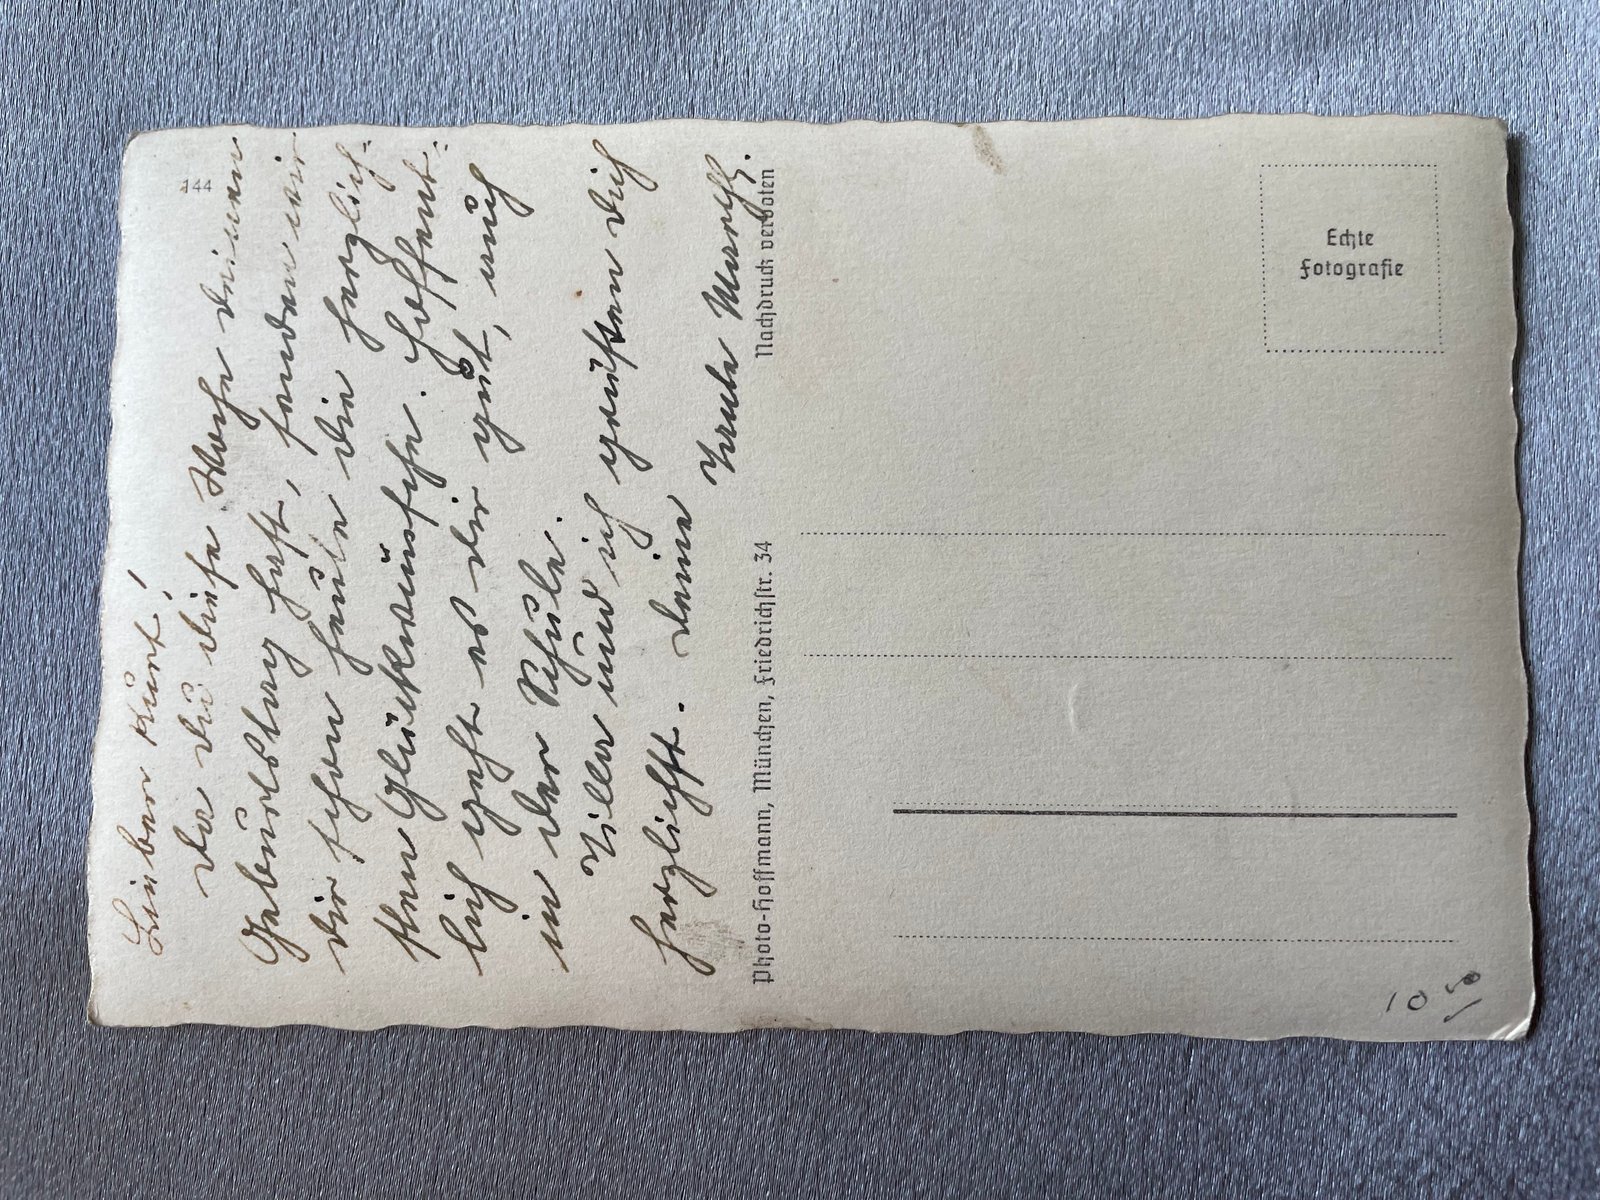 144
Lieber Kurt!
Da du diese Woche deinen
Geburtstag hast, senden wir
dir schon heute die herzlich-
sten Glückwünsche. Hoffent-
lich geht es dir gut, auch
in der Schule.
und ich grüßen dich
herzlichst. Deine
Photo-Hoffmann, München, Friedrichstr. 34
Nachdruck verboten
Echte
Fotografie
10 50